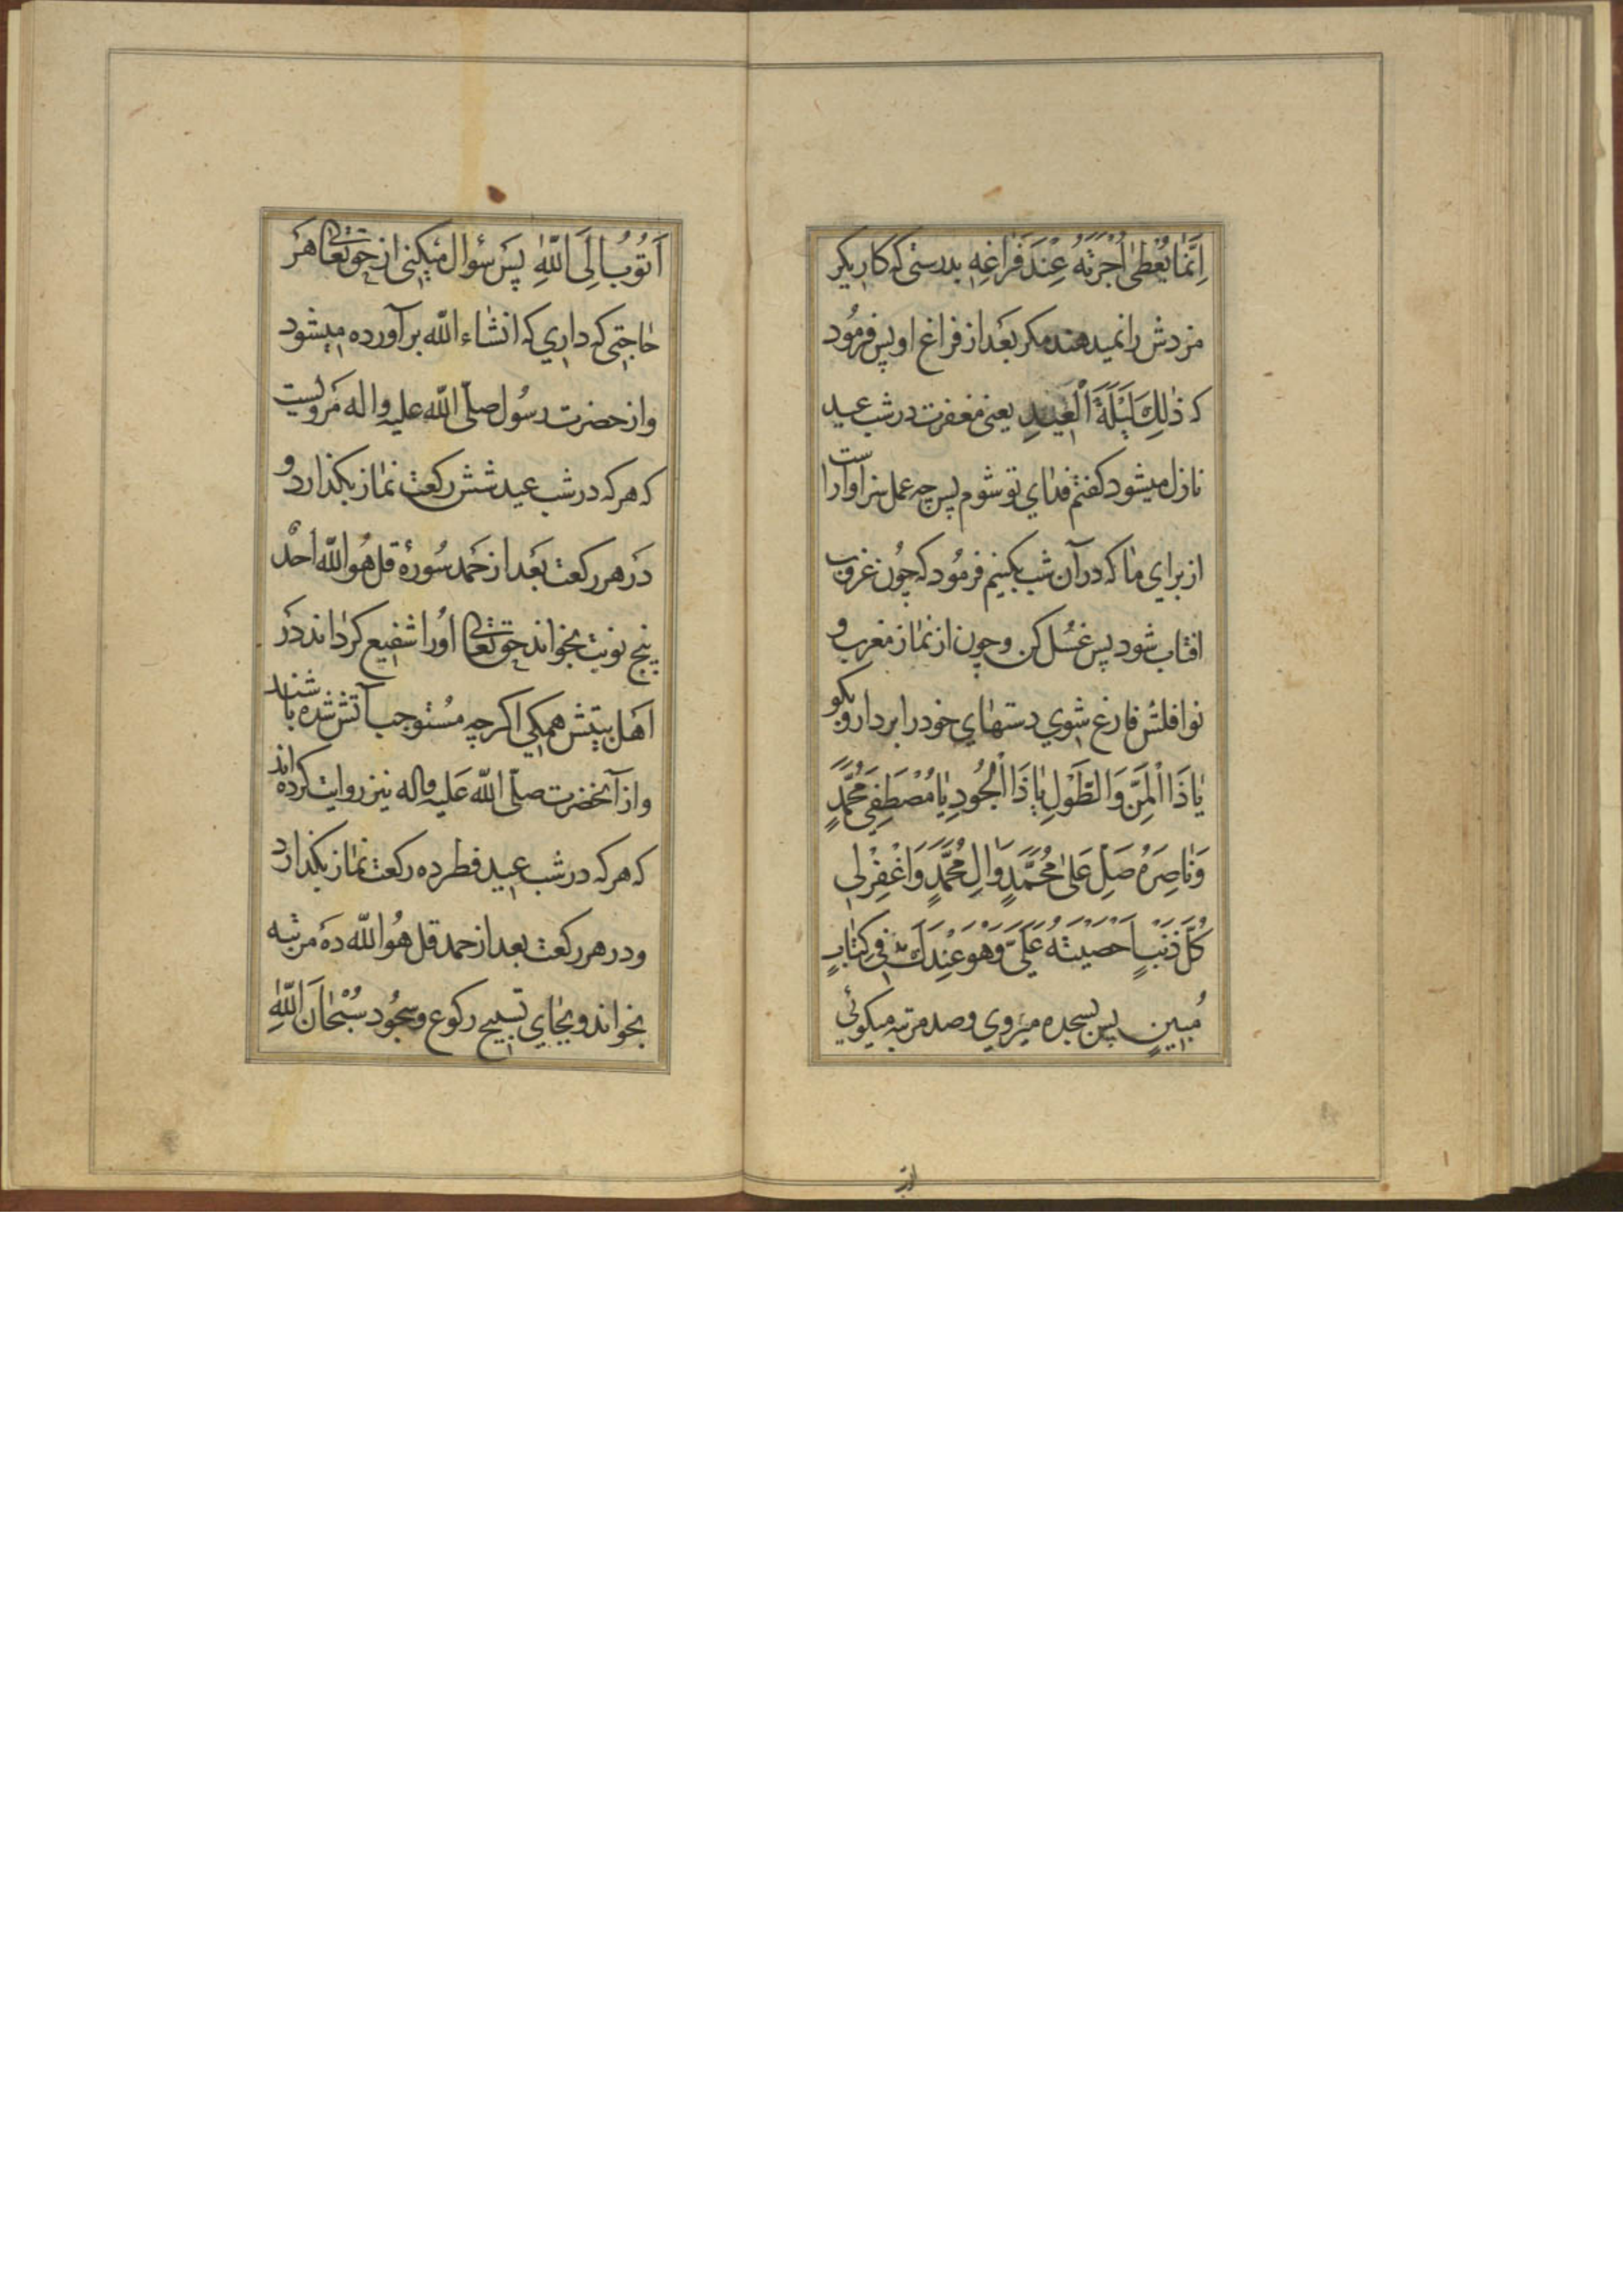 اِنَّمٰا يُعْطىٰ اُجْرَتَهُ عِنْدَ فَرٰاغِهِ بدرستى كه كاريكر
مزدش را نميدهند مكر بعَد از فراغ او پس فرمُود
كه ذٰلِكَ لَيْلَةَ الْعيٖدِ يعنى مغفرت در شب عيد
نازل ميشود كفتم فداي تو شوم پس چه عمل سزاوارا ست
از براي ما كه در آن شب بكنيم فرمُود كه چُون غروب
افتاب شود پس غسُل كن و چون از نماز مغرب و
نوافلش فارغ شوي دستهاي خود را بردار و بكو
يٰا ذَا الْمَنِّ وَالطَّوْلِ يٰا ذَا الْجُودِ يٰا مُصْطَفِىَ مُحَمَّدٍ
وَنٰاصِرَهُ صَلِّ عَلىٰ مُحَمَّدٍ وَاٰلِ مُحَمَّدٍ وَاغْفِرْلىٖ
كُلَّ ذَنْبٍ اَحْصَيْتَهُ عَلَىَّ وَهُوَ عِنْدَكَ فىٖ كِتٰابٍ
مُبيٖنٍ پس بسجده ميروي و صد مرتبه ميكوئي
از
اَتُوبُ اِلَى اللّٰهِ پس سُوال ميكني از حق تعالى هَر
حاجتي كه داري كه انشاء اللّه برآورده ميشود
و از حضرت رسُول صلّى اللّه عليه و اله مَرويست
كه هر كه در شب عيد شش ركعت نماز بكذارد و
دَر هر ركعت بعَد از حَمد سُورهٔ قل هُو اللّه احدٌ
پنج نوبت بخواند حق تعالى اوُرا شفيع كرداند دَر
اهَل بيتش همكي اكر چه مسُتوجب آتش شده باشند
و از آنحضرت صلّى اللّه عَليه و اله نيز روايت كرده اند
كه هر كه در شب عيد فطر ده ركعت نماز بكذارد
و در هر ركعت بعد از حمد قل هُو اللّه دَه مرتبه
بخواند و بجاي تسبيح ركوع و سجُود سُبْحٰانَ اللّٰهِ